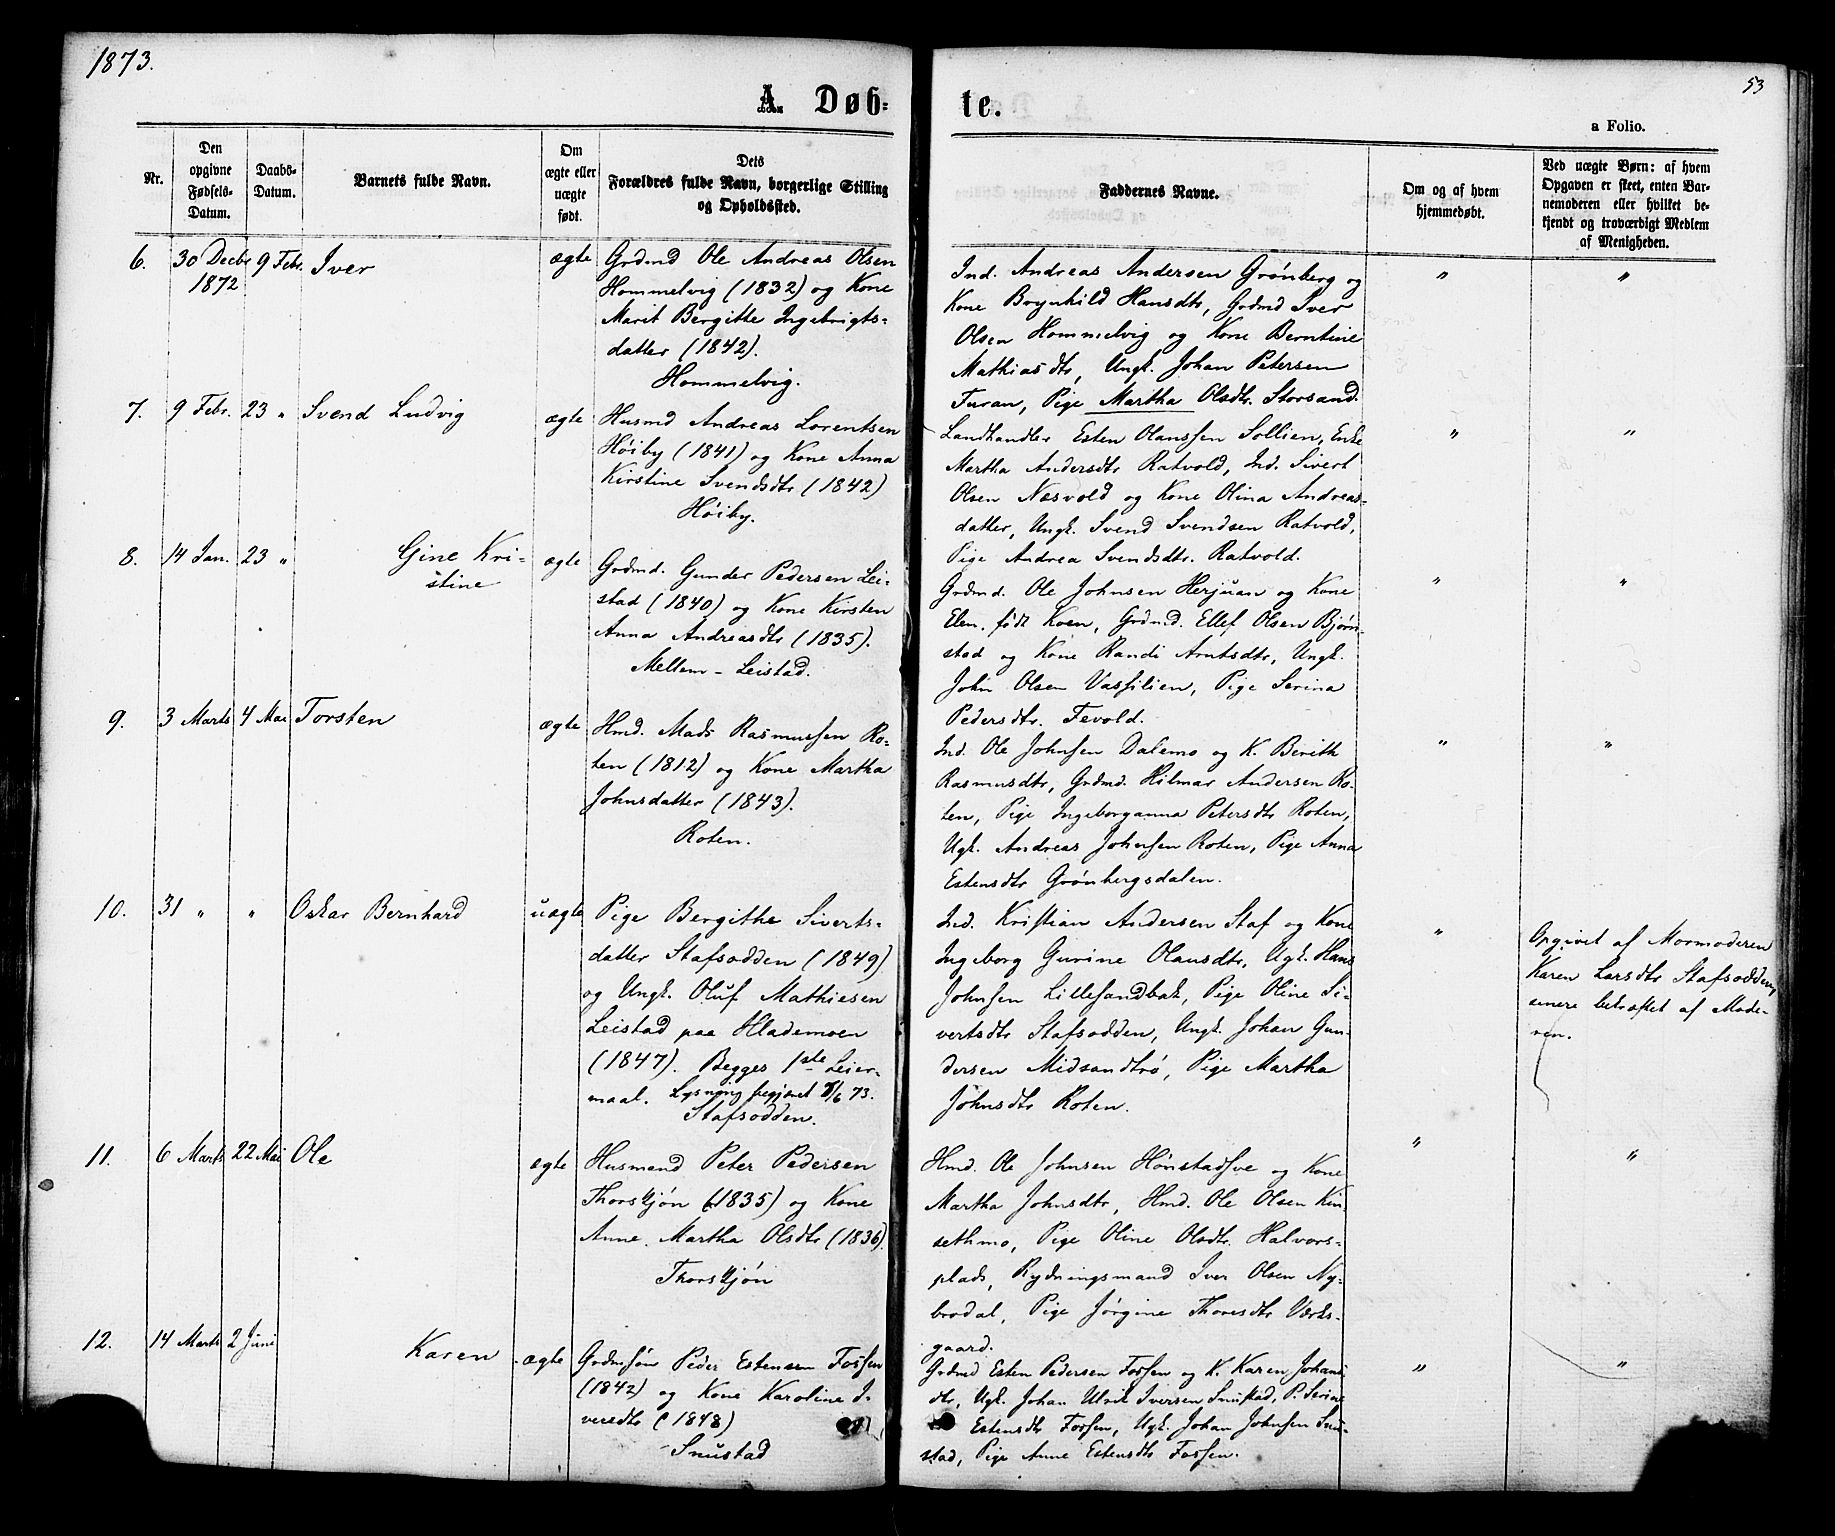 1873.
53
A. Døb-
te.
a Folio.
Nr.
Den
opgivne
Fødsels-
Datum.
Daabs-
Datum.
Barnets fulde Navn.
Om
ægte eller
uægte
født.
Dets
Forældres fulde Navn, borgerlige Stilling
og Opholdssted.
Faddernes Navne.
Om og af hvem
hjemmedøbt.
Ved uægte Børn: af hvem
Opgaven er skeet, enten Bar-
nemoderen eller hvilket be-
kjendt og troværdigt Medlem
af Menigheden.
6.
30 Decbr
1872
9 Febr.
Iver
ægte
Grdmd Ole Andreas Olsen
Hommelvig (1832) og Kone
Marit Bergitte Ingebrigts-
datter (1842).
Hommelvig.
Ind. Andreas Andersen Grønberg og
Kone Brynhild Hansdtr, Grdmd Iver
Olsen Hommelvig og Kone Berntine
Mathiasdtr, Ungk. Johan Petersen
Turan, Pige Martha Olsdtr. Storsand.
"
"
7.
9 Febr.
23 "
Svend Ludvig
ægte
Husmd Andreas Lorentsen
Høiby (1841) og Kone Anna
Kirstine Svendsdtr (1842)
Høiby.
Landhandler Esten Olanssen Sollien, Enke
Martha Andersdtr Ratvold, Ind. Sivert
Olsen Næsvold og Kone Olina Andreas-
datter, Ungk. Svend Svendsen Ratvold,
Pige Andrea Svendsdtr. Ratvold.
"
"
8.
14 Jan.
23 "
Gine Kri-
stine
ægte
Grdmd. Gunder Pedersen Lei-
stad (1840) og Kone Kirsten
Anna Andreasdtr (1835).
Mellem-Leistad.
Grdmd. Ole Johnsen Herjuan og Kone
Elen, født Koen, Grdmd. Ellef Olsen Bjørn-
stad og Kone Randi Arntsdtr, Ungk.
John Olsen Vassilien, Pige Serina
Pedersdtr. Fevold.
"
"
9.
3 Marts
4 Mai
Torsten
ægte
Hmd. Mads Rasmussen Ro-
ten (1812) og Kone Martha
Johnsdatter (1843).
Roten.
Ind. Ole Johnsen Dalemo og K. Berith
Rasmusdtr, Grdmd. Hilmar Andersen Ro-
ten, Pige Ingeborganna Petersdtr Roten,
Ugk. Andreas Johnsen Roten, Pige Anna
Estensdtr Grønbergsdalen.
"
"
10.
31 "
"
Oskar Bernhard
uægte
Pige Bergithe Siverts-
datter Stafsodden (1849)
og Ungk. Oluf Mathiesen
Leistad paa Hlademoen
(1847). Begges 1ste Leier-
maal. Lysning begjæret 8/6 73.
Stafsodden.
Ind. Kristian Andersen Staf og Kone
Ingeborg Gurine Olausdtr, Ugk. Hans
Johnsen Lillesandbak, Pige Oline Si-
vertsdtr Stafsodden, Ungk. Johan Gun-
dersen Midsandtrø, Pige Martha
Johnsdtr Roten.
"
Opgivet af Mormoderen
Karen Larsdtr Stafsodden,
senere bekræftet af Mode-
ren.
11.
6 Marts
22 Mai
Ole
ægte
Husmand Peter Pedersen
Thorskjøn (1835) og Kone
Anne Martha Olsdtr (1836).
Thorskjøn
Hmd. Ole Johnsen Hønstadsve og Kone
Martha Johnsdtr, Hmd. Ole Olsen Kin-
sethmo, Pige Oline Olsdtr. Halvors-
plads, Rydningsmand Iver Olsen Ny-
brodal, Pige Jørgine Thoresdtr Værks-
gaard.
"
"
12.
14 Marts
2 Juni
Karen
ægte
Grdmsøn Peder Estensen Fossen
(1842) og Kone Karoline I-
versdtr (1848)
Snustad
Grdmd Esten Pedersen Fossen og K. Karen Johans-
dtr, Ugk. Johan Ulrik Iversen Snustad, P. Serine
Estensdtr Fossen, Ugk. Johan Johnsen Snu-
stad, Pige Anne Estensdtr Fossen.
"
"